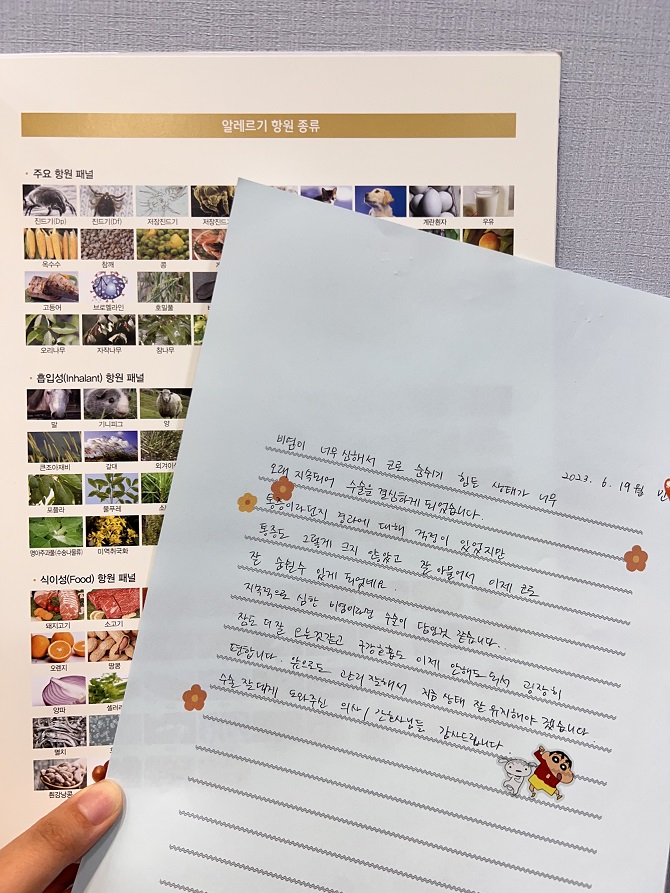 알레르기 항원 종류
· 주요 항원 패널
진드기(Dp) 진드기(Df) 저장진드기 저장진드기 계란흰자 우유
옥수수 참깨 콩
고등어 브로멜라인 호밀풀
오리나무 자작나무 참나무
· 흡입성(Inhalant) 항원 패널
말 기니피그 양
큰조아재비 갈대 외겨이삭
포플라 물푸레
명아주과풀(수송나물류) 미역취국화
· 식이성(Food) 항원 패널
돼지고기 소고기
오렌지 땅콩
양파 샐러리
멸치
흰강낭콩
2023. 6. 19 월
비염이 너무 심해서 코로 숨쉬기 힘든 상태가 너무
오래 지속되어 수술을 결심하게 되었습니다.
통증이라던지 경과에 대해 걱정이 있었지만
통증도 그렇게 크지 않았고 잘 아물어서 이제 코로
잘 숨쉴수 있게 되었네요.
지속적으로 심한 비염이라면 수술이 답인것 같습니다..
잠도 더 잘 오는것같고 구강호흡도 이제 안해도 되서 굉장히
편합니다. 앞으로도 관리 잘해서 지금 상태 잘 유지해야 겠습니다
수술 잘 되게 도와주신 의사/간호사샘들 감사드립니다.